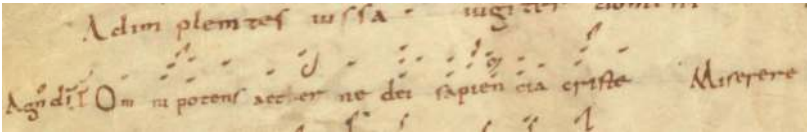 Adim plentes iussa iugiter domini
Agn di I Om ni potens aeter ne dei sapien cia criste Miserere